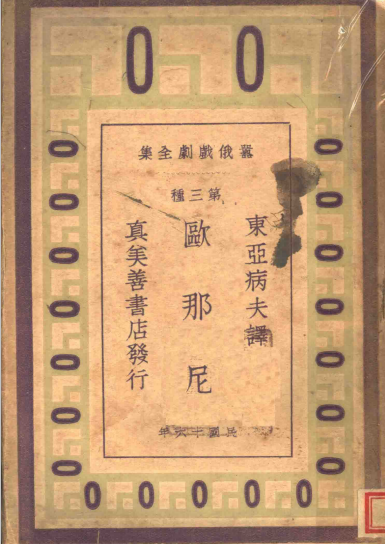 囂俄戲劇全集
第三種
東亞病夫譯
歐那尼
真美善書店發行
民國十六年